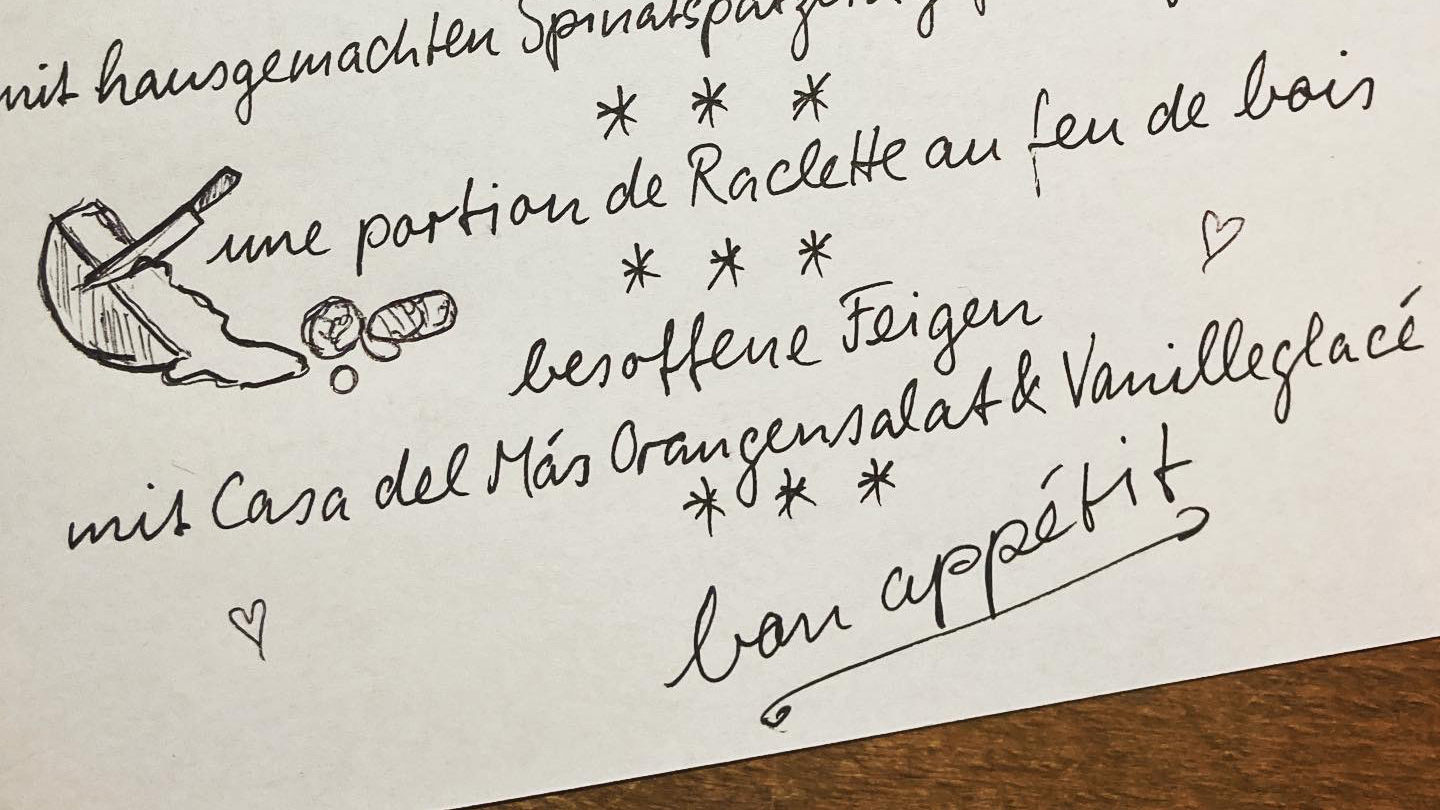 mit hausgemachten
* * *
une portion de Raclette au feu de bois
* * *
besoffene Feigen
mit Casa del Más Orangensalat & Vanilleglacé
* * *
bon appétit